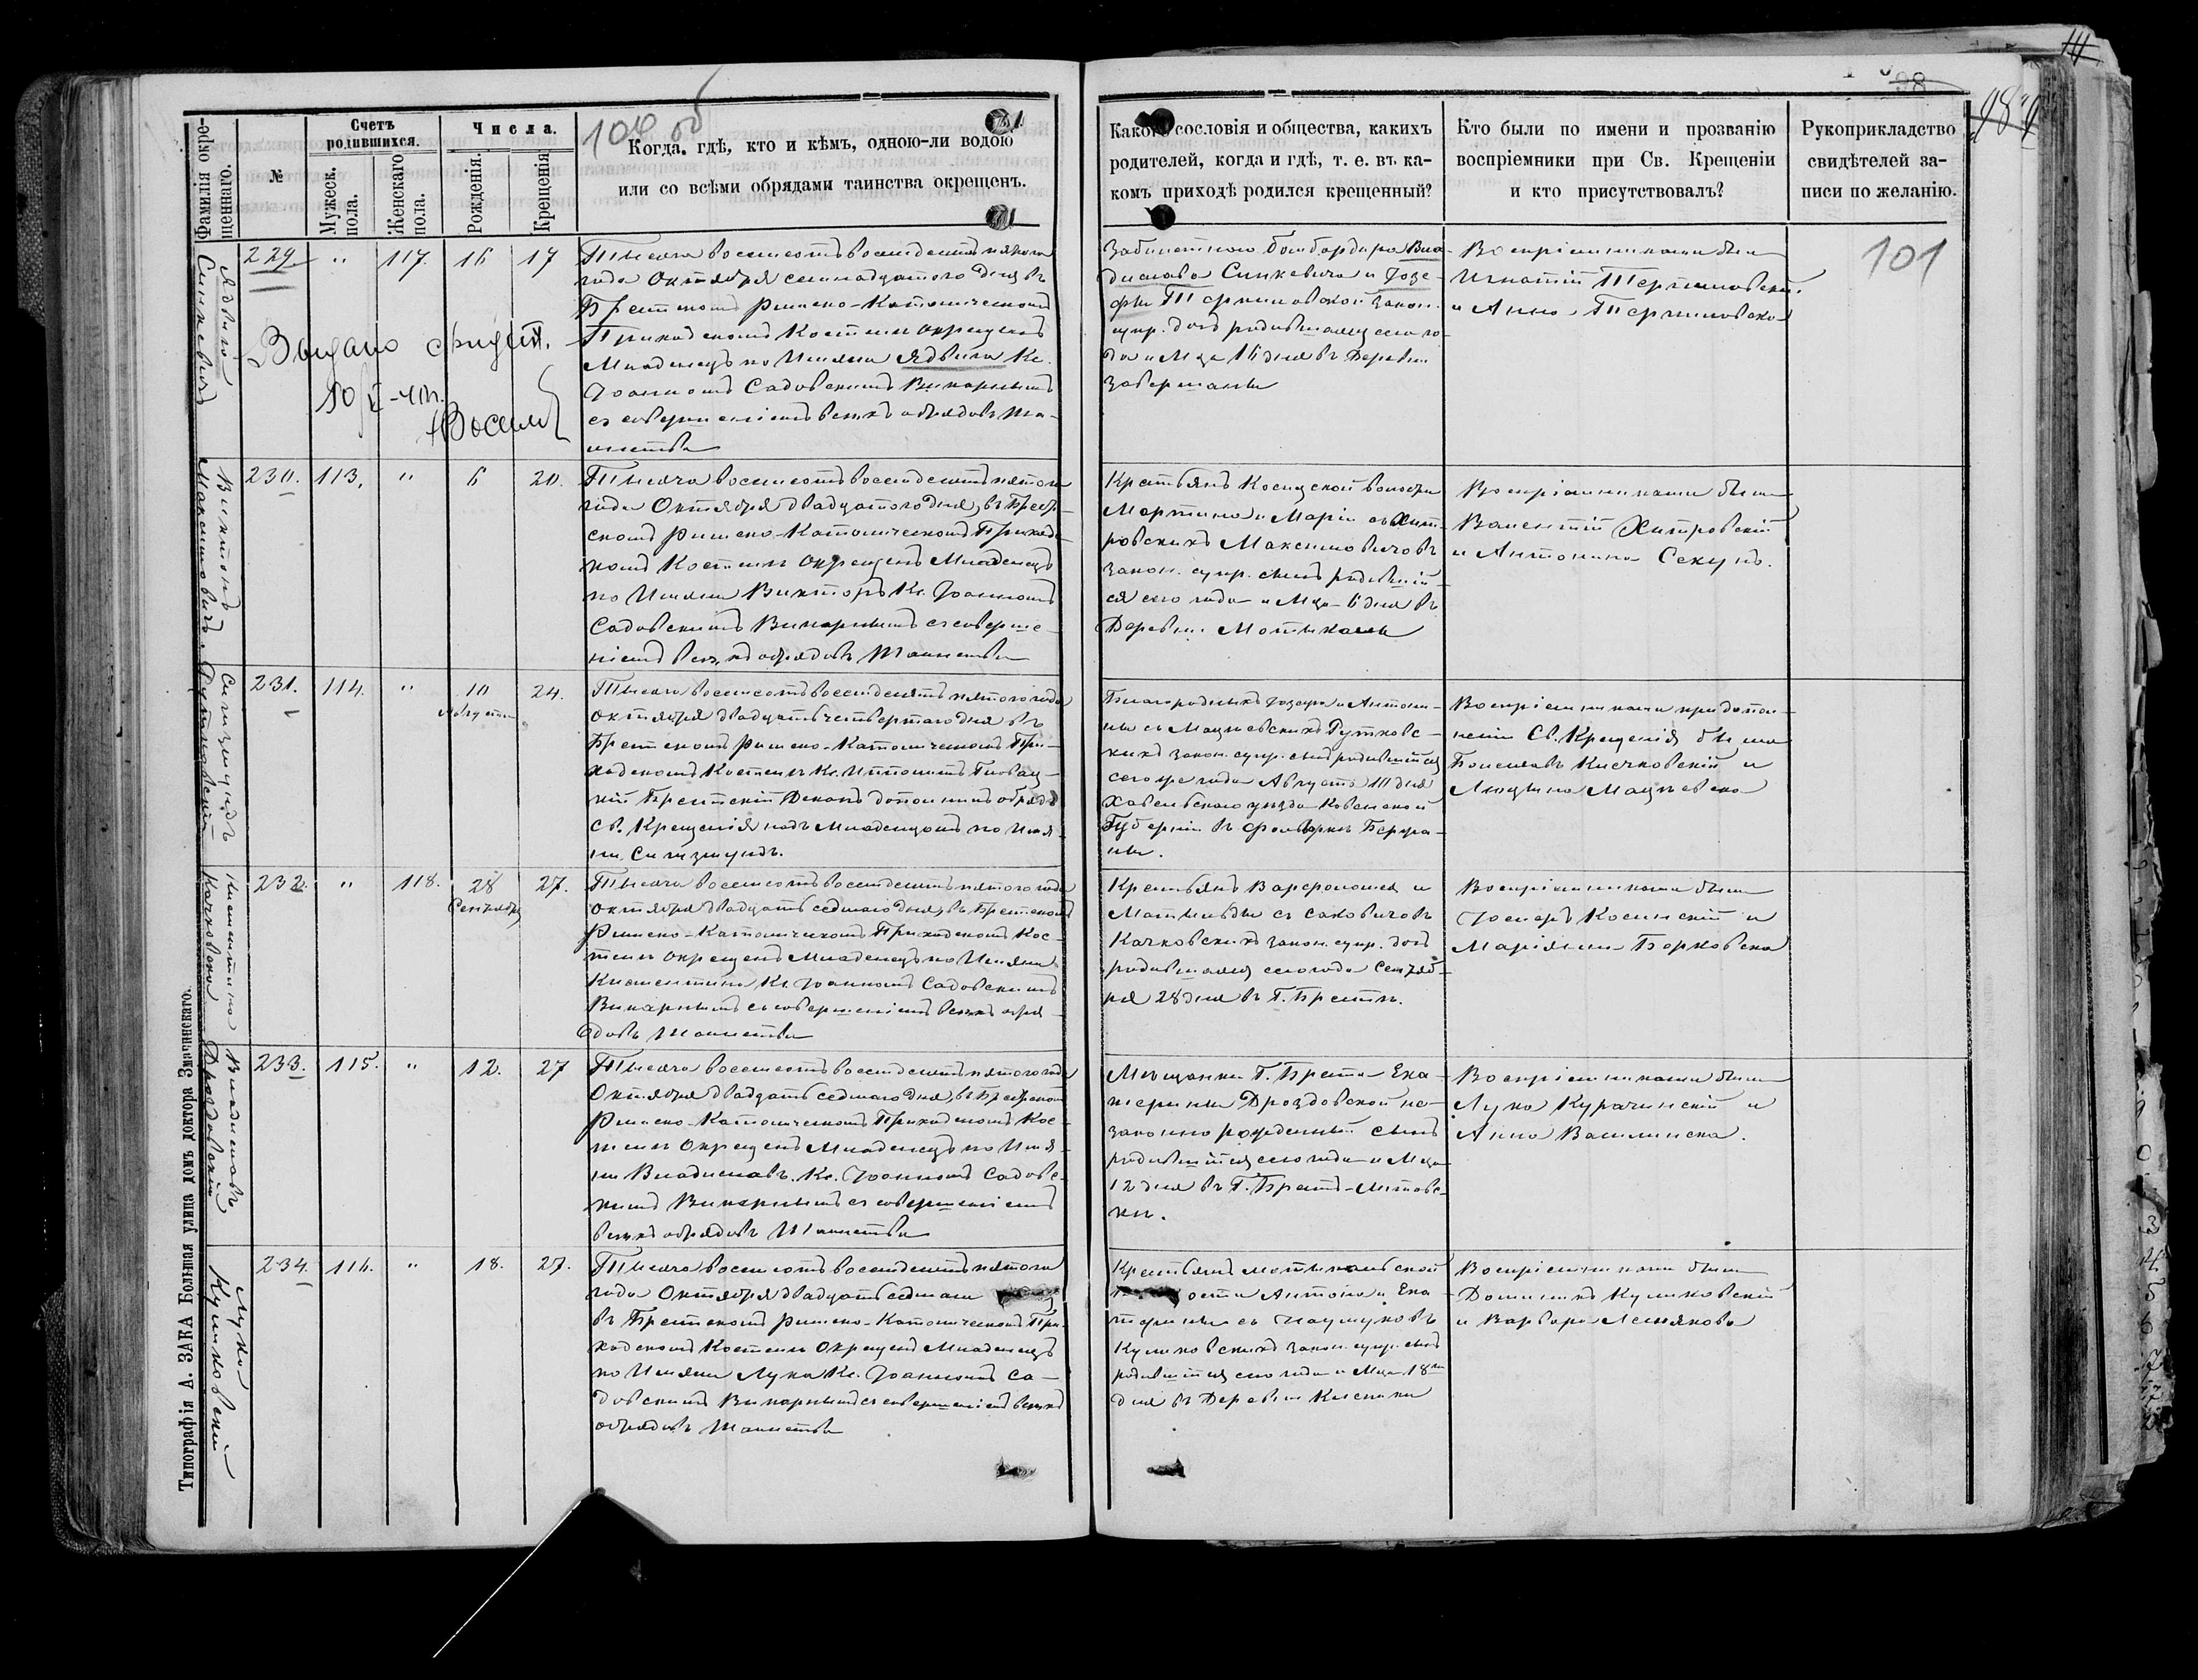 104 об
98
101
Фамилія окре-
щеннаго.
№
Счетъ
родившихся.
Мужеск.
пола.
Женскаго
пола.
Числа.
Рожденія.
Крещенія
Когда, гдѣ, кто и кѣмъ, одною-ли водою
или со всѣми обрядами таинства окрещенъ.
Какого сословія и общества, какихъ
родителей, когда и гдѣ, т. е. въ ка-
комъ приходѣ родился крещенный?
Кто были по имени и прозванію
воспріемники при Св. Крещеніи
и кто присутствовалъ?
Рукоприкладство
свидѣтелей за-
писи по желанію.
Ядвига
Синкевичъ
229. " 117. 16 17
Выдано
Тысяча восемсотъ восемдесятъ пятого
года Октября семнадцатого дня въ
Брестскомъ Римско-Католическомъ
Приходскомъ Костелѣ окрещенъ
Младенецъ по Имяни Ядвига Кс.
Іоанномъ Садовскимъ Викарнымъ
съ совершеніемъ всѣхъ обрядовъ Та-
инства
Бомбардира Вла-
дислава Синкевича и Іозе-
фы Терпиловской закон.
супр. дочь родившаяся сего го-
да и М-ца 16 дня въ Деревни
Воспріемниками были
Игнатій Терпиловскій
и Анна Терпиловска
Викторъ
Максимовичъ
230. 113. " 6 20.
Тысяча восемсотъ восемдесятъ пятого
года Октября двадцатого дня, въ Брест-
скомъ Римско-Католическомъ Приход-
скомъ Костелѣ окрещенъ Младенецъ
по Имяни Викторъ Кс. Іоанномъ
Садовскимъ Викарнымъ съ соверше-
ніемъ всѣхъ обрядовъ Таинства
Крестьянъ Косицской волости
Мартина и Маріи съ Хит-
ровскихъ Максимовичовъ
закон. супр. сынъ родившій-
ся сего года и М-ца 6 дня въ
Деревни Мотыкалы
Воспріемниками были
Валентій Хитровскій
и Антонина Секунъ.
Сигизмундъ
Рутковскій
231. 114. " 10 24.
Августа
Тысяча восемсотъ восемдесятъ пятого года
Октября двадцать четвертаго дня въ
Брестскомъ Римско-Католическомъ При-
ходскомъ Костелѣ Кс. Ипполитъ
Брестскій Деканъ дополнилъ обрядъ
Св. Крещенія надъ Младенцомъ по Имя-
ни Сигизмундъ.
Благородныхъ Іозефа и Антони-
ны съ Мацѣевскихъ Рутковс-
кихъ закон. супр. сынъ родившійся
сего же года Августа 10 дня
уѣзда Ковенской
Губерніи въ фольваркѣ
Воспріемниками при допол-
неніи Св. Крещенія были
Болеславъ Клечковскій и
Люцына Мацѣевска
Клементина
Качковска
232. " 118. 28 27.
Сентября
Тысяча восемсотъ восемдесятъ пятого года
Октября двадцать седмаго дня, въ Брестскомъ
Римско-Католическомъ Приходскомъ Кос-
телѣ окрещенъ Младенецъ по Имяни
Клементина Кс. Іоанномъ Садовскимъ
Викарнымъ съ совершеніемъ всѣхъ обря-
довъ Таинства
Крестьянъ Варфоломея и
Матильды съ Саковичовъ
Качковскихъ закон. супр. дочь
родившаяся сего года Сентяб-
ря 28 дня въ Г. Брестѣ.
Воспріемниками были
Госперъ Косинскій и
Маріянна Борковска
Владиславъ
Дроздовскій
233. 115. " 12. 27
Тысяча восемсотъ восемдесятъ пятого года
Октября двадцать седмаго дня, въ Брестскомъ
Римско-Католическомъ Приходскомъ Кос-
телѣ Окрещенъ Младенецъ по Имя-
ни Владиславъ. Кс. Іоанномъ Садовс-
кимъ Викарнымъ съ совершеніемъ
всѣхъ обрядовъ Таинства
Мѣщанки Г. Бреста Ека-
терины Дроздовской не-
законно рожденный сынъ
родившійся сего года и М-ца
12 дня въ Г. Брестъ-Литовс-
кѣ.
Воспріемниками были
Лука Курачинскій и
Анна Василинска.
Лука
Куликовскій
234. 116. " 18. 27.
Тысяча восемсотъ восемдесятъ пятого
года Октября двадцать седмаго
въ Брестскомъ Римско-Католическомъ При-
ходскомъ Костелѣ Окрещенъ Младенецъ
по Имяни Лука Кс. Іоанномъ Са-
довскимъ Викарнымъ съ совершеніемъ всѣхъ
обрядовъ Таинства
Крестьянъ Мотыкальской
ости Антона и Ека-
терины съ Наумуковъ
Куликовскихъ закон. супр. сынъ
родившійся сего года и М-ца 18
дня въ Деревни
Воспріемниками были
Доминикъ Куликовскій
и Варвара
Типографія А. ЗАКА Большая улица домъ доктора Змачинскаго.